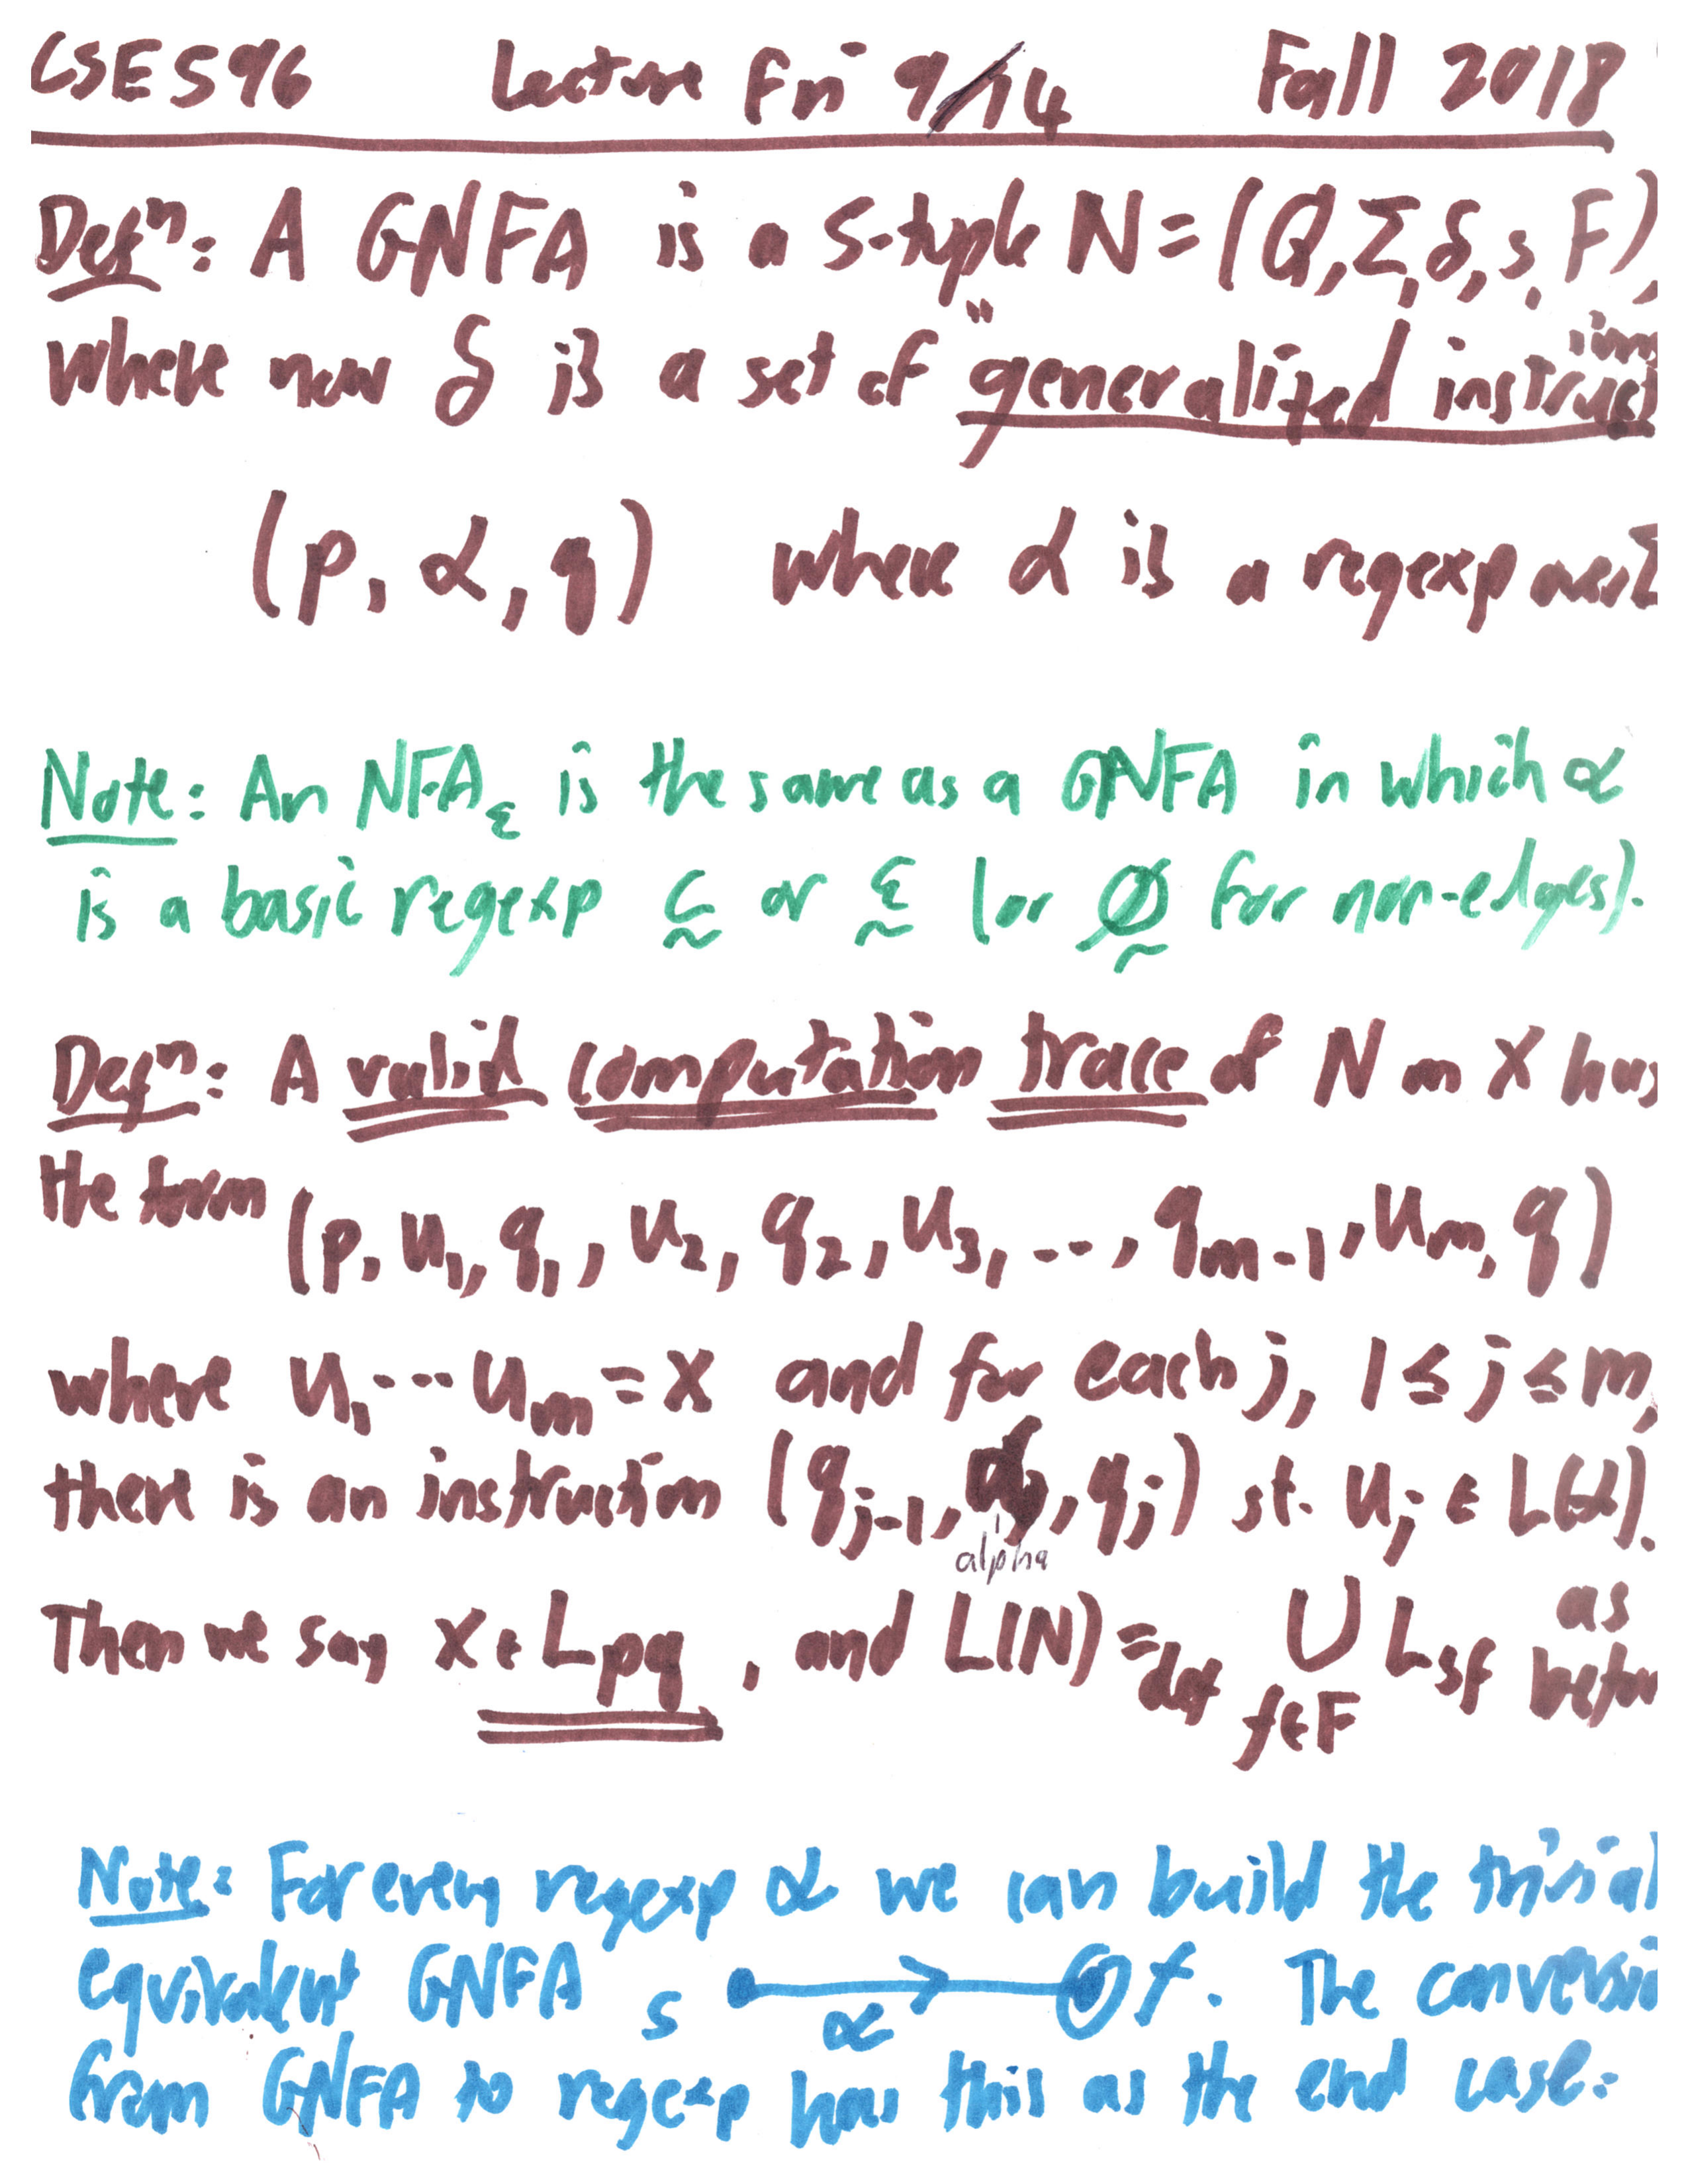 CSE596 Lecture Fri 9/14 Fall 2018
Defⁿ: A GNFA is a 5-tuple N = (Q, Σ, δ, s, F),
where now δ is a set of "generalized instructions
(p, α, q) where α is a regexp over Σ
Note: An NFA_ε is the same as a GNFA in which α
is a basic regexp c̰ or ε̰ (or ∅̰ for non-edges).
Defⁿ: A valid computation trace of N on X has
the form (p, u₁, q₁, u₂, q₂, u₃, ..., q_{m-1}, u_m, q)
where u₁...u_m = X and for each j, 1 ≤ j ≤ m,
there is an instruction (q_{j-1}, α, q_j) st. u_j ∈ L(α).
alpha
Then we say X ∈ L_{pq}, and L(N) =_{def} ∪_{f∈F} L_{sf} as befor
Note: For every regexp α we can build the trivial
equivalent GNFA s α f. The conversi
from GNFA to regexp has this as the end case: